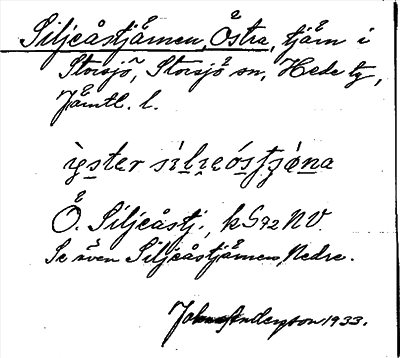 Siljeåstjärnen, Östra, tjärn i
Storsjö, Storsjö sn, Hede tg,
Jämtl. l.
ìɛster sìlɪeóstʒǿna
Ö. Siljeåstj., kS92 NV.
Se även Siljeåstjärnen, Nedre.
Anderson 1933.